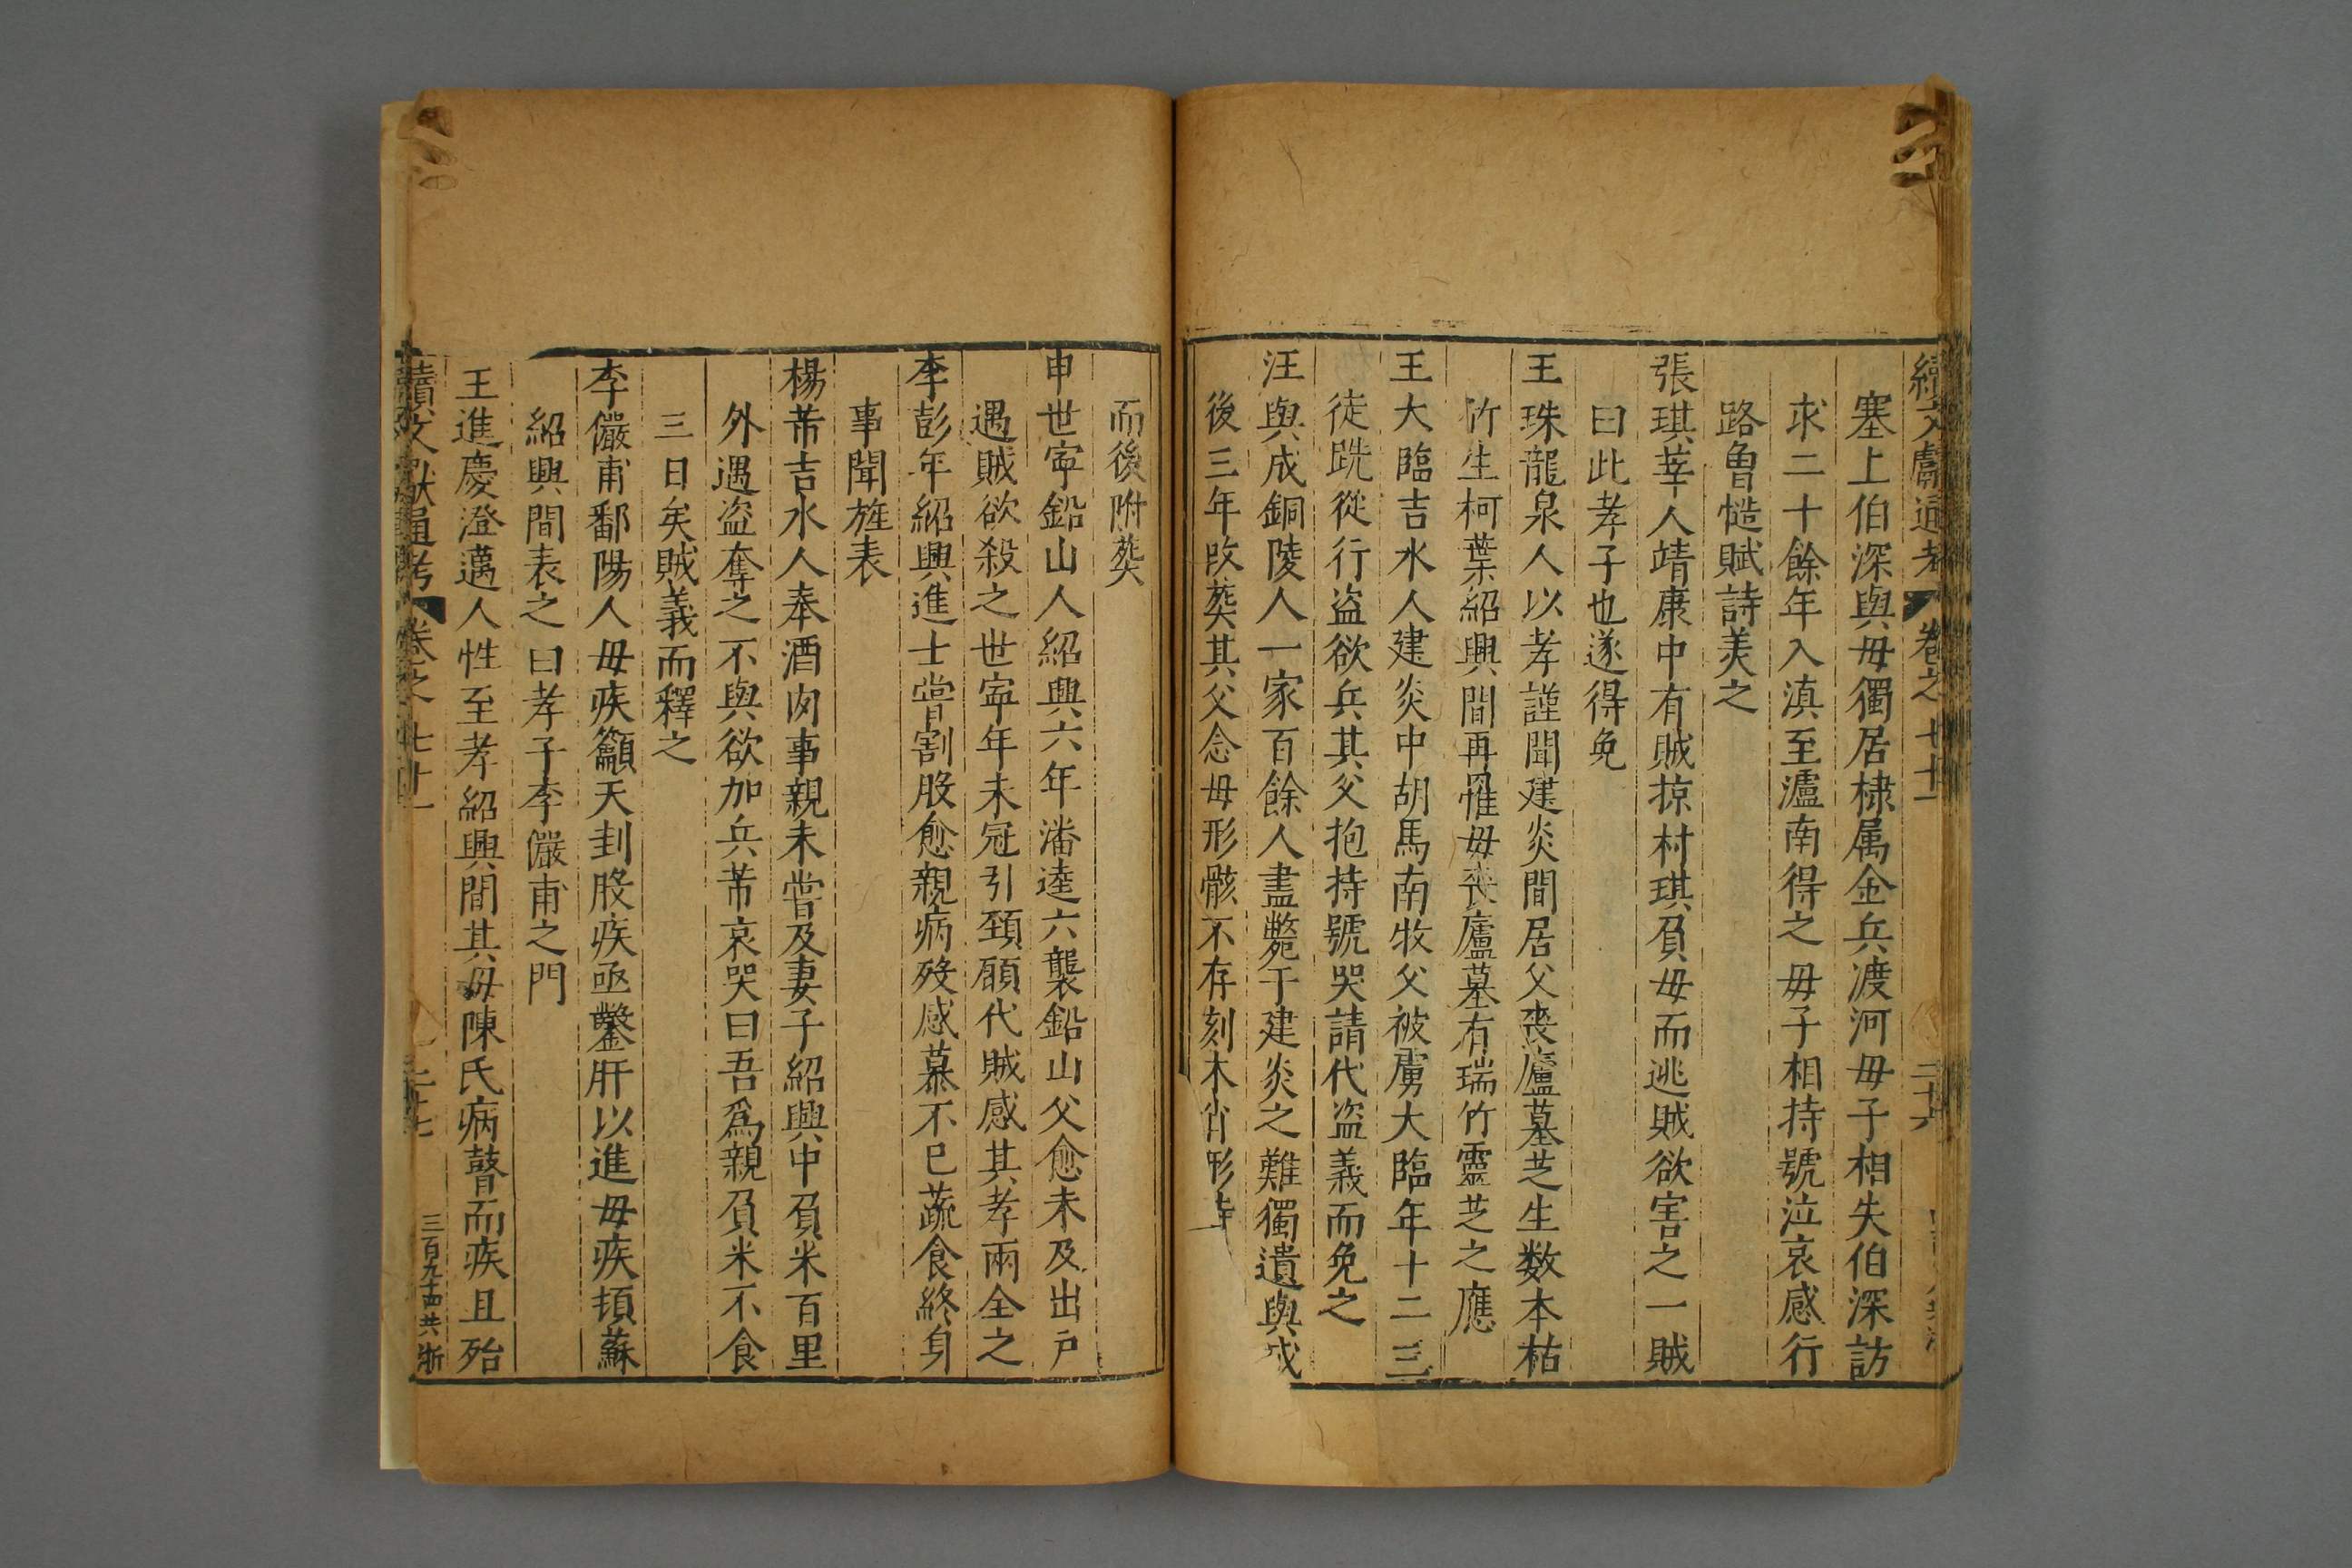 續文獻通考 卷之七十一 二十六
塞上伯深與毋獨居棣属金兵渡河毋子相失伯深訪
求二十餘年入滇至瀘南得之毋子相持號泣哀感行
路魯慥賦詩美之
張琪莘人靖康中有賊掠村琪負毋而逃賊欲害之一賊
曰此孝子也遂得免
王珠龍泉人以孝謹聞建炎間居父丧廬墓芝生数本枯
竹生柯葉紹興間再罹毋丧廬墓有瑞竹靈芝之應
王大臨吉水人建炎中胡馬南牧父被虜大臨年十二三
徒跣從行盗欲兵其父抱持號哭請代盗義而免之
汪與成銅陵人一家百餘人盡斃于建炎之難獨遺與成
後三年改葬其父念毋形骸不存刻木肖形
而後附葬
申世寧鉛山人紹興六年潘逵六襲鉛山父愈未及出戶
遇賊欲殺之世寧年未冠引頚願代賊感其孝兩全之
李彭年紹興進士嘗割股愈親病歿感慕不已蔬食終身
事聞旌表
楊芾吉水人奉酒肉事親未嘗及妻子紹興中負米百里
外遇盗奪之不與欲加兵芾哀哭曰吾爲親負米不食
三日矣賊義而釋之
李儼甫鄱陽人毋疾籲天刲股疾亟鑿肝以進毋疾頓蘇
紹興間表之曰孝子李儼甫之門
王進慶澄邁人性至孝紹興間其毋陳氏病瞽而疾且殆
續文獻通考 卷之七十一 二十七 三百九十四共 浙